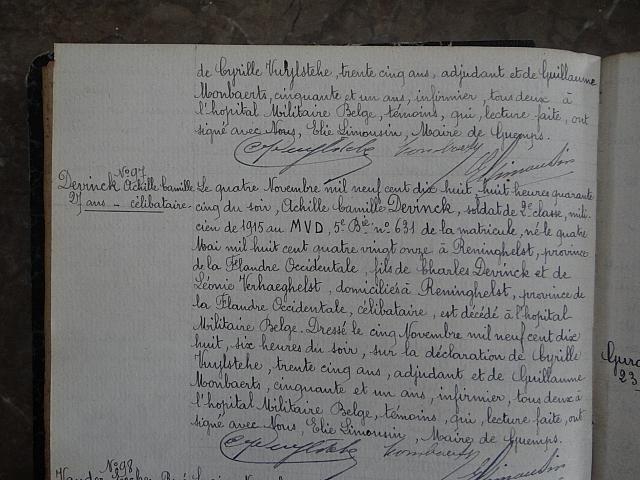 de Cyrille Vuylsteke, trente cinq ans, adjudant et de Guillaume
Monbaerts, cinquante et un ans, infirmier, tous deux à
l'hopital Militaire Belge, témoins, qui, lecture faite, ont
signé avec Nous, Elie Limousin, Maire de Guemps.
No 97
Devinck Achille Camille
27 ans - célibataire.
Le quatre Novembre mil neuf cent dix huit, huit heures quarante
cinq du soir, Achille Camille Devinck, soldat de 2e classe, mili-
cien de 1915 au MVD, 5e Bie no 631 de la matricule, né le quatre
Mai mil huit cent quatre vingt onze à Reninghelst, province
de la Flandre Occidentale, fils de Charles Devinck et de
Léonie Verhaeghelst, domiciliés à Reninghelst, province de
la Flandre Occidentale, célibataire, est décédé à l'hopital
Militaire Belge. Dressé le cinq Novembre mil neuf cent dix
huit, six heures du soir, sur la déclaration de Cyrille
Vuylsteke, trente cinq ans, adjudant et de Guillaume
Monbaerts, cinquante et un ans, infirmier, tous deux à
l'hopital Militaire Belge, témoins, qui, lecture faite, ont
signé avec Nous, Elie Limousin, Maire de Guemps.
No 98
23